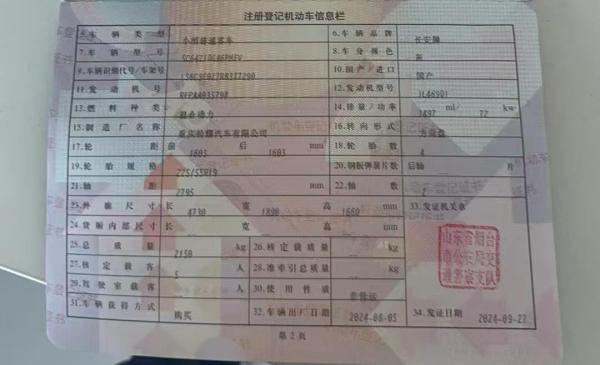 注册登记机动车信息栏
5.车辆类型 小型普通客车 6.车辆品牌 长安牌
7.车辆型号 8.车身颜色 灰
9.车辆识别代号/车架号 10.国产/进口 国产
11.发动机号 12.发动机型号 JL469Q1
13.燃料种类 混合动力 14.排量/功率 1497 ml/ 72 kw
15.制造厂名称 汽车有限公司 16.转向形式 方向盘
17.轮距 前 1603 后 1603 mm 18.轮胎数 4
19.轮胎规格 225/55R19 20.钢板弹簧片数 后轴 片
21.轴距 2795 mm 22.轴数 2
23.外廓尺寸 长 4730 宽 1890 高 1660 mm 33.发证机关章
24.货厢内部尺寸 长 宽 高 mm
25.总质量 2158 kg 26.核定载质量 kg
27.核定载客 5 人 28.准牵引总质量 kg
29.驾驶室载客 人 30.使用性质 非营运
31.车辆获得方式 购买 32.车辆出厂日期 2024-08-05 34.发证日期 2024-09-27
山东省烟台
市公安局交
通警察支队
第2页